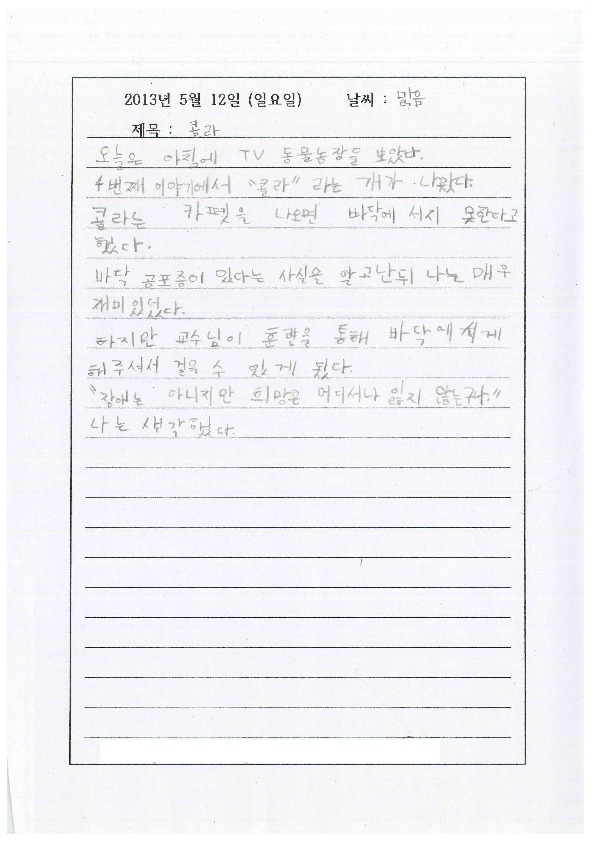 2013년 5월 12일 (일요일) 날씨 : 맑음
제목 : 콜라
오늘은 아침에 TV 동물농장을 보았다.
4번째 이야기에서 "콜라" 라는 개가 나왔다.
콜라는 카펫을 나오면 바닥에 서지 못한다고
했다.
바닥 공포증이 있다는 사실을 알고난뒤 나는 매우
재미있었다.
하지만 교수님이 훈련을 통해 바닥에 서게
해주셔서 걸을 수 있게 됬다.
"장애는 아니지만 희망은 어디서나 잃지 않는구나."
나는 생각했다.